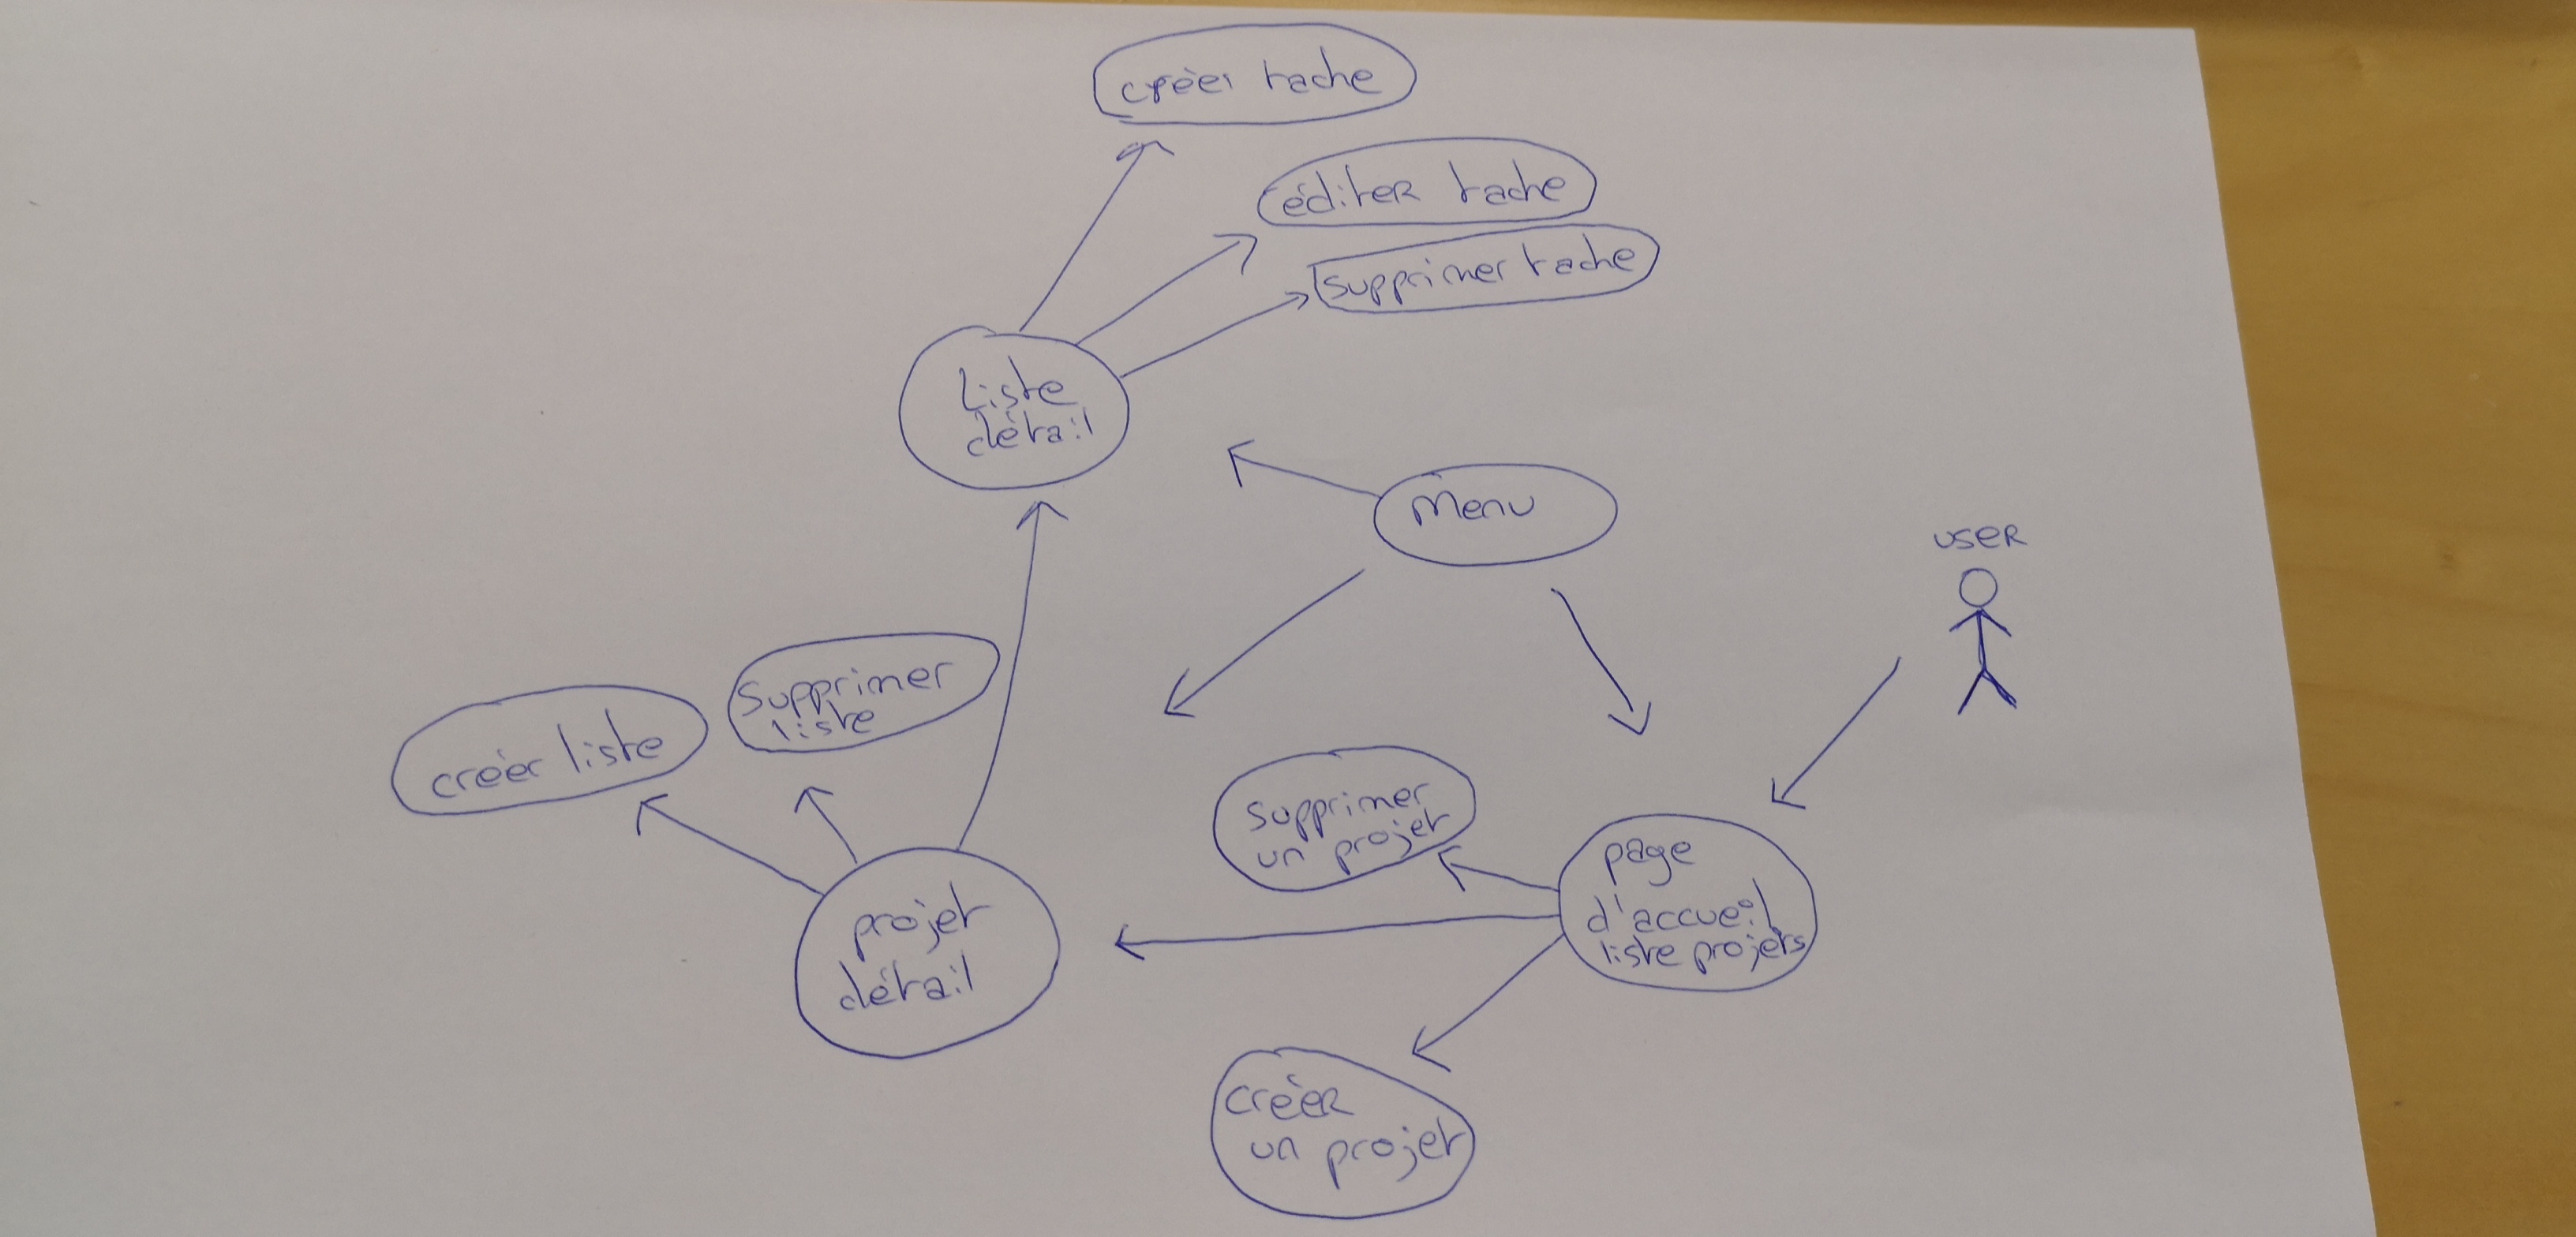 créer tache
éditer tache
supprimer tache
Liste
détail
Menu
user
supprimer
liste
créer liste
supprimer
un projet
page
d'accueil
liste projets
projet
détail
créer
un projet